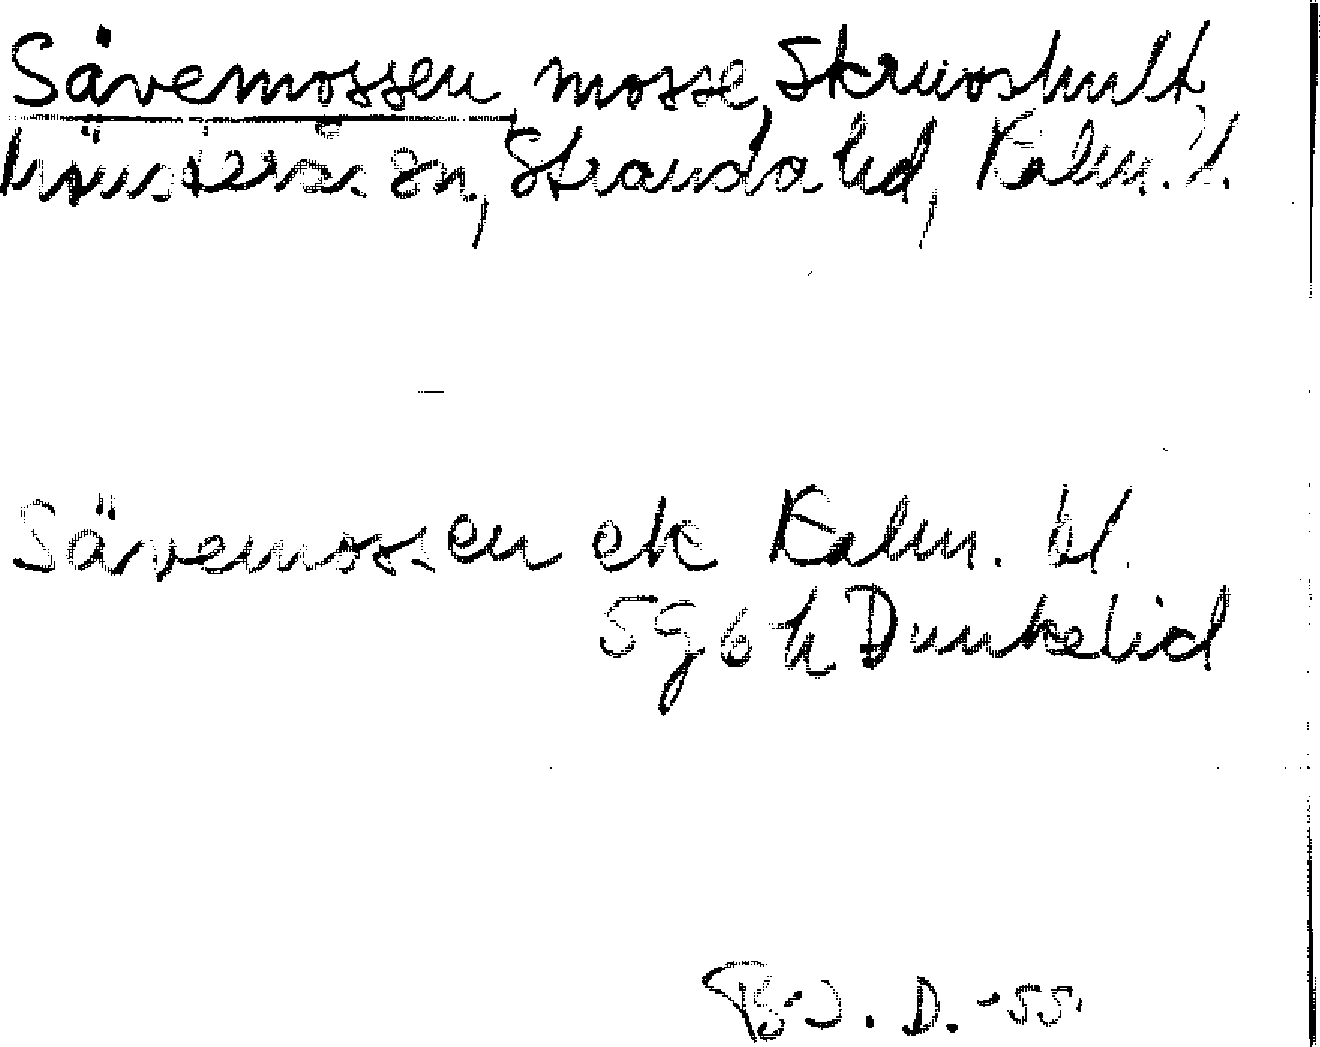 Sävemossen, mosse, Skruvshult,
Mönsterås sn, Stranda hd, Kalm. l.
Sävemossen ek Kalm. l.
5g6h Dunkelid
B.J. D. -55.